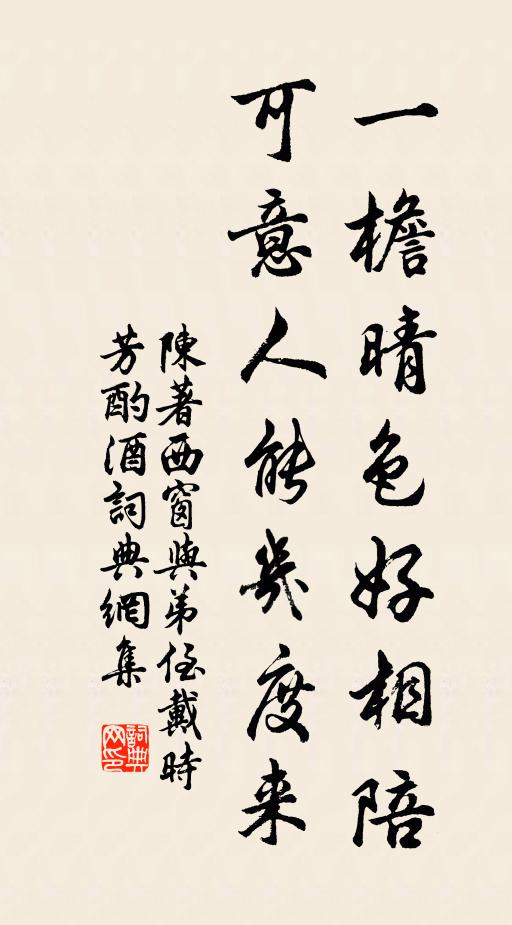 一檐晴色好相陪
可意人能幾度来
陳著西窗與弟侄戴時
芳酌酒詞典網集
詞典网印